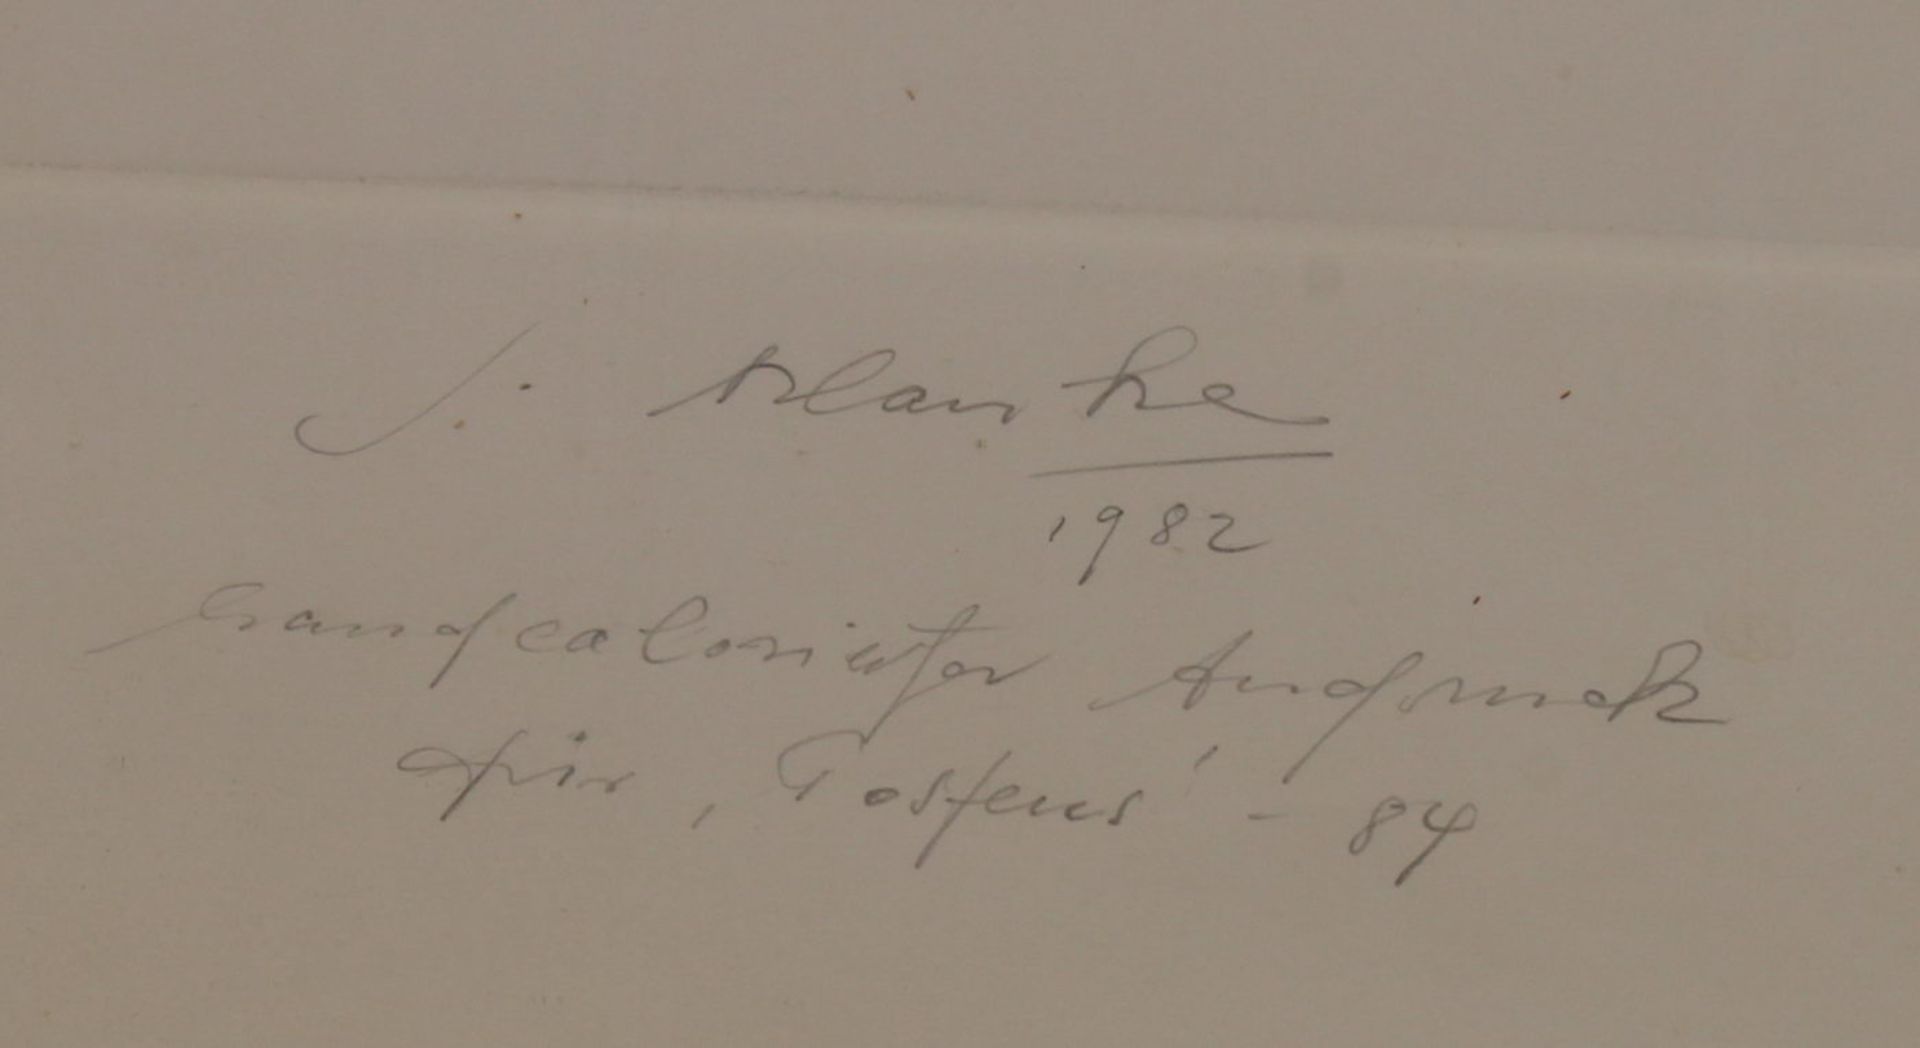 J. Blanke
1982
handcolorierter Andruck
für 'Posfeus' - 84